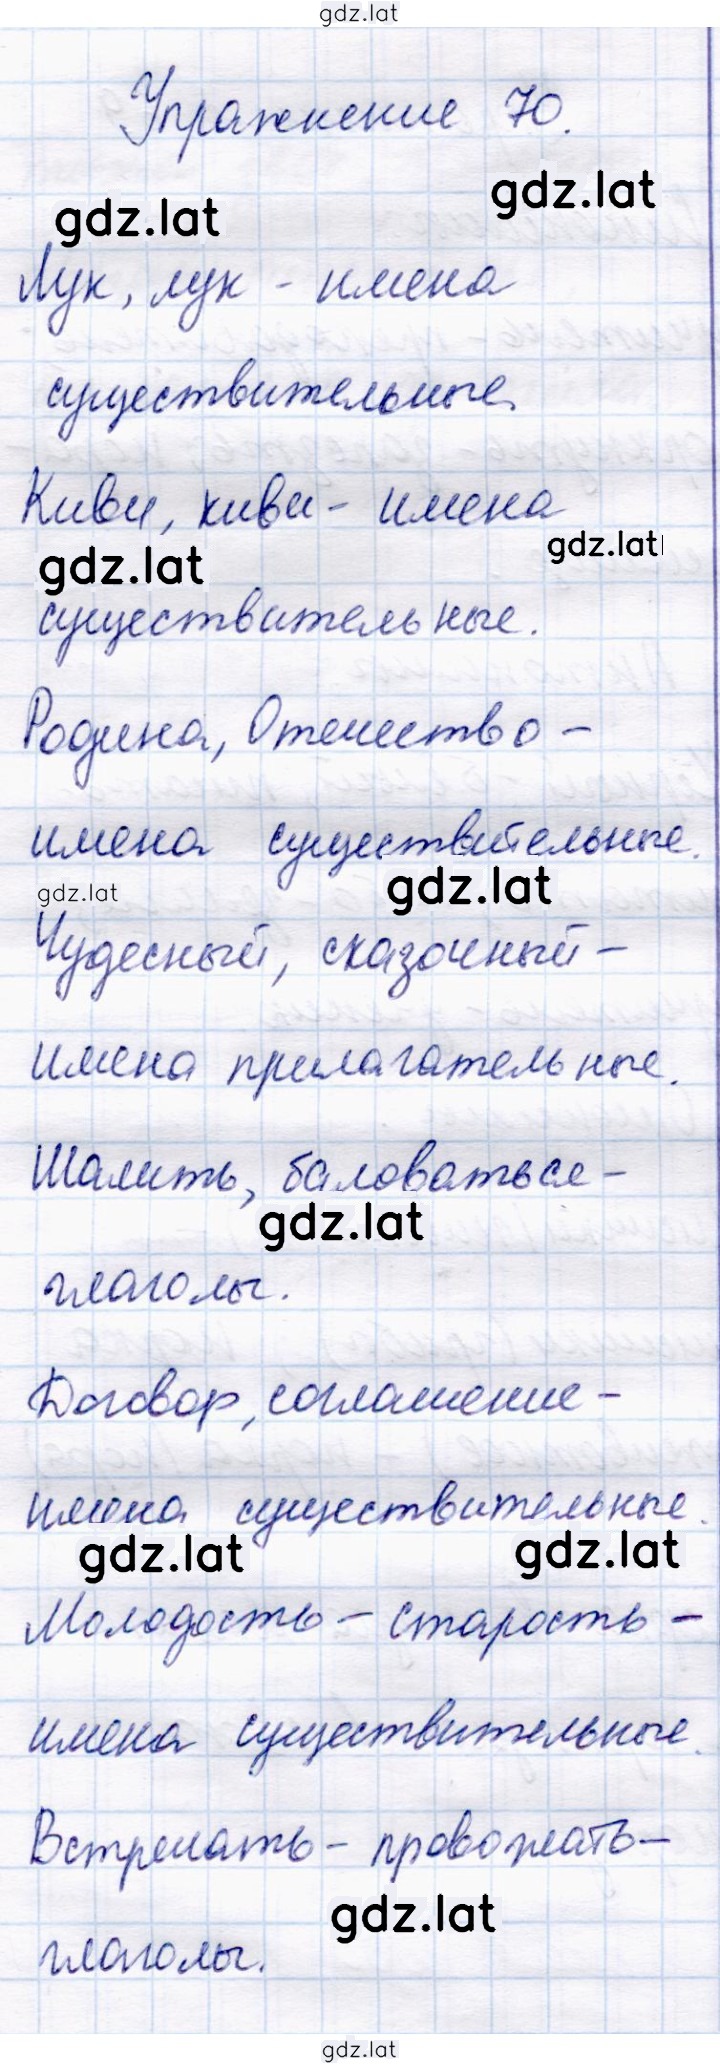 gdz.lat
Упражнение 70.
gdz.lat gdz.lat
Лук, лук - имена
существительные.
Киви, киви - имена
gdz.lat gdz.lat
существительные.
Родина, Отечество -
имена существительные.
gdz.lat gdz.lat
Чудесный, сказочный -
имена прилагательные.
Шалить, баловаться -
gdz.lat
глаголы.
Договор, соглашение -
имена существительные.
gdz.lat gdz.lat
Молодость - старость -
имена существительные.
Встречать - провожать -
gdz.lat
глаголы.
gdz.lat